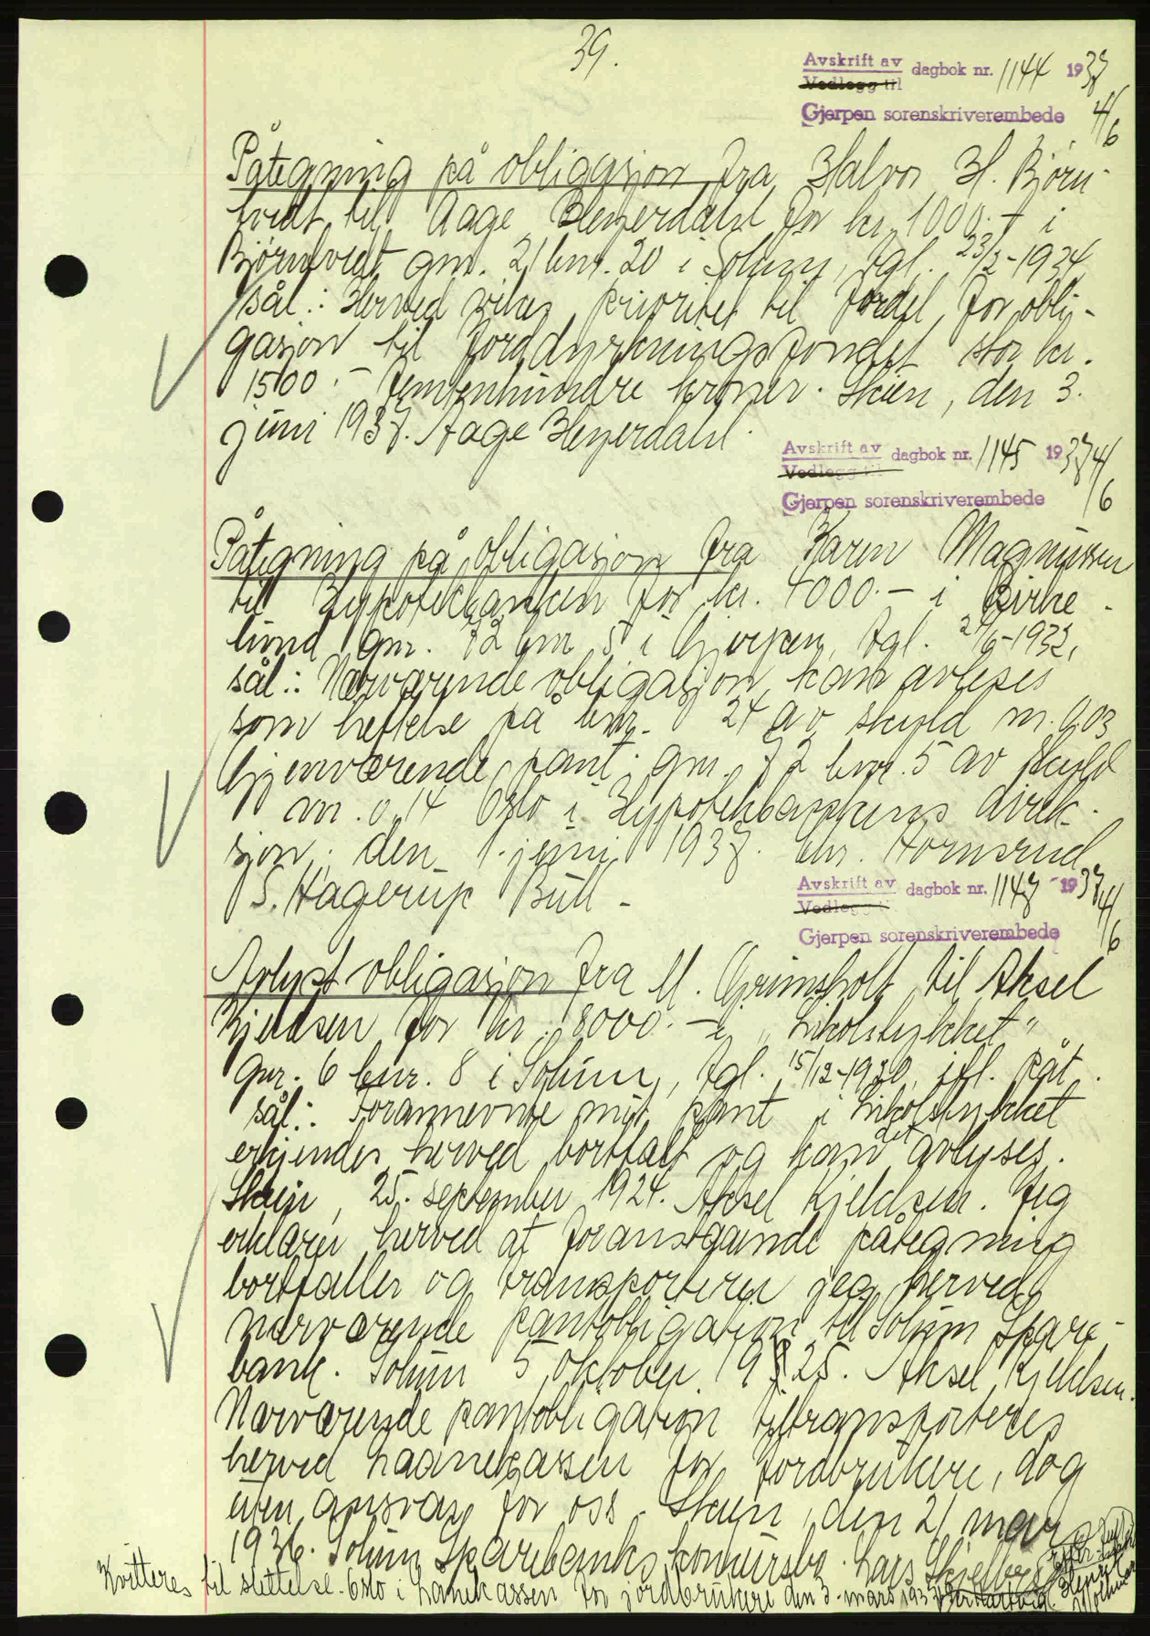 39.
Avskrift av dagbok nr. 1144 1937
Vedlegg til
Gjerpen sorenskriverembede 4/6
Påtegning på obligasjon fra Halvor H. Bjørn-
tvedt til Aage Heyerdahl for kr. 1000.- i
Bjørntvedt gnr. 21 bnr. 20 i Solum, tgl. 23/2-1934
sål.: Herved vikes prioritet til fordel for obli-
gasjon til Jorddyrkningsfondet stor kr.
1500.- femtenhundre kroner. Skien, den 3.
juni 1937. Aage Heyerdahl.
Avskrift av dagbok nr. 1145 1937 4/6
Vedlegg til
Gjerpen sorenskriverembede
Påtegning på obligasjon fra Karen Magnussen
til Hypotekbanken for kr. 4000.- i Birke-
lund gnr. 72 bnr 5 i Gjerpen, tgl. 24/6-1932,
sål.: Nærværende obligasjon kan avleses
som heftelse på bnr. 24 av skyld m. 0,03
Gjenværende pant: gnr. 72 bnr. 5 av skyld
m. 0,14 Oslo i Hypotekbankens direk-
sjon, den 1. juni 1937. Chr. Hornsrud
S. Hagerup Bull -
Avskrift av dagbok nr. 1147 1937 4/6
Vedlegg til
Gjerpen sorenskriverembede
Avlyst obligasjon fra M. Grimsholt til Aksel
Kjeldsen for kr. 8000.- i "
gnr. 6 bnr. 8 i Solum, tgl. 15/12-1920, jfl. påt.
sål.: Forannevnte mit pant i
erkjendes herved bortfalt og kan det avlyses.
Skien, 25. september 1924. Aksel Kjeldsen. Jeg
erklærer herved at foranstaaende påtegning
bortfaller og transporterer jeg herved
nærværende pantobligation til Solum Spare-
bank. Solum 5 oktober 1925. Aksel Kjeldsen.
Nærværende pantobligation tiltransporteres
herved Laanekassen for Jordbrukere, dog
uten ansvar for oss. Skien, den 21 mars
1936. Solum Sparebanks konkursbo. Lars
Kvitteres til slettelse. Oslo i Lånekassen for jordbrukere den 3. mars 1937